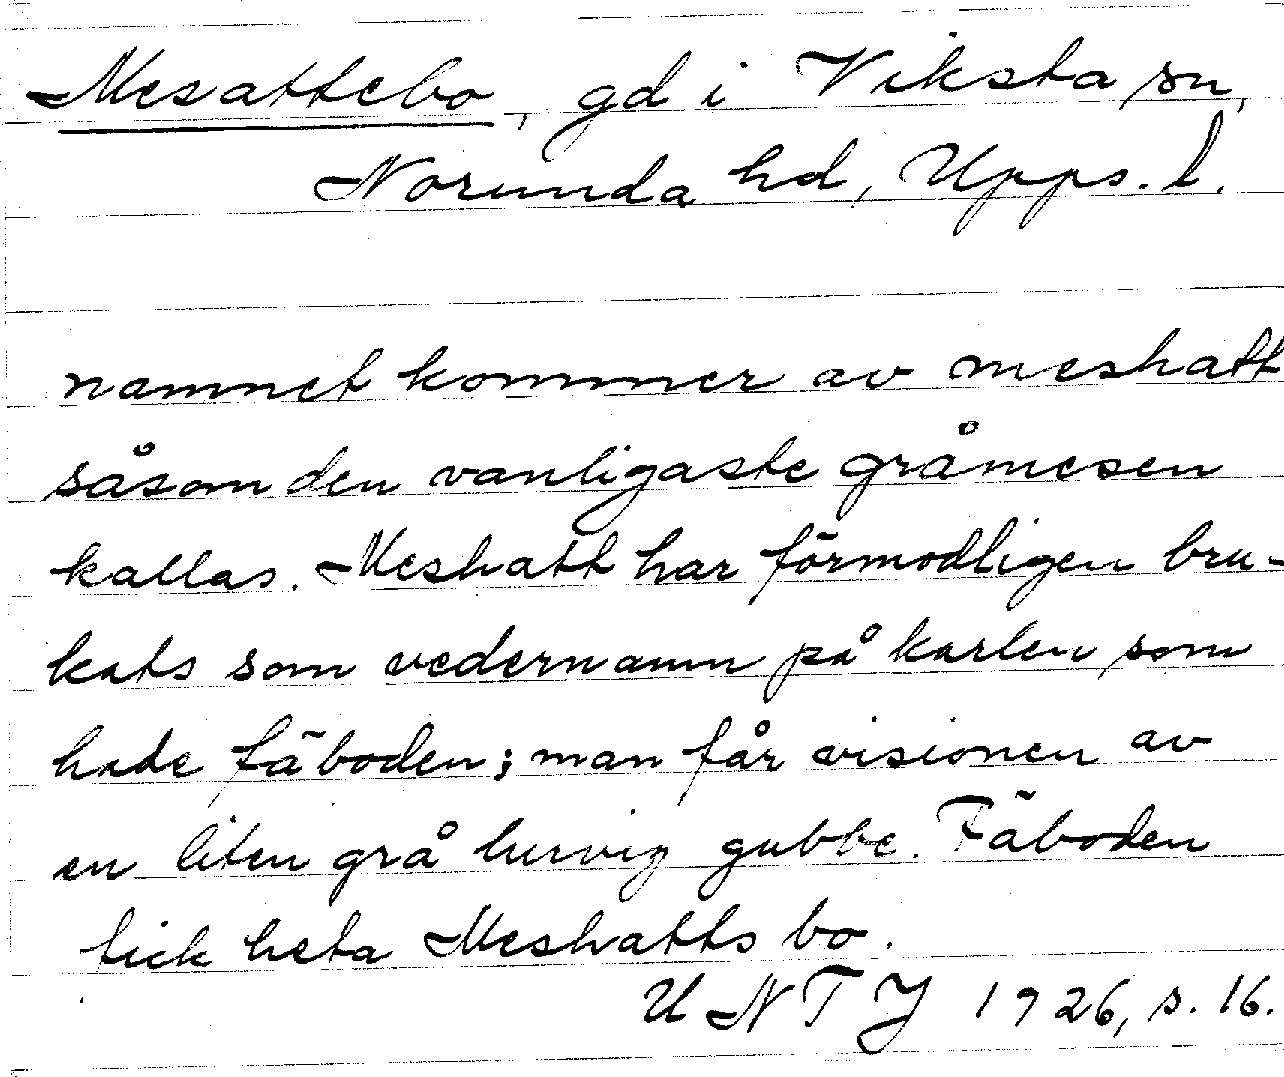 Mesattebo, gd i Viksta sn,
Norunda hd, Upps. l.
namnet kommer av meshatt
såsom den vanligaste gråmesen
kallas. Meshatt har förmodligen bru-
kats som vedernamn på karlen som
hade fäboden; man får visionen av
en liten grå lurvig gubbe. Fäboden
fick heta Meshatts bo.
UNTJ 1926, s. 16.